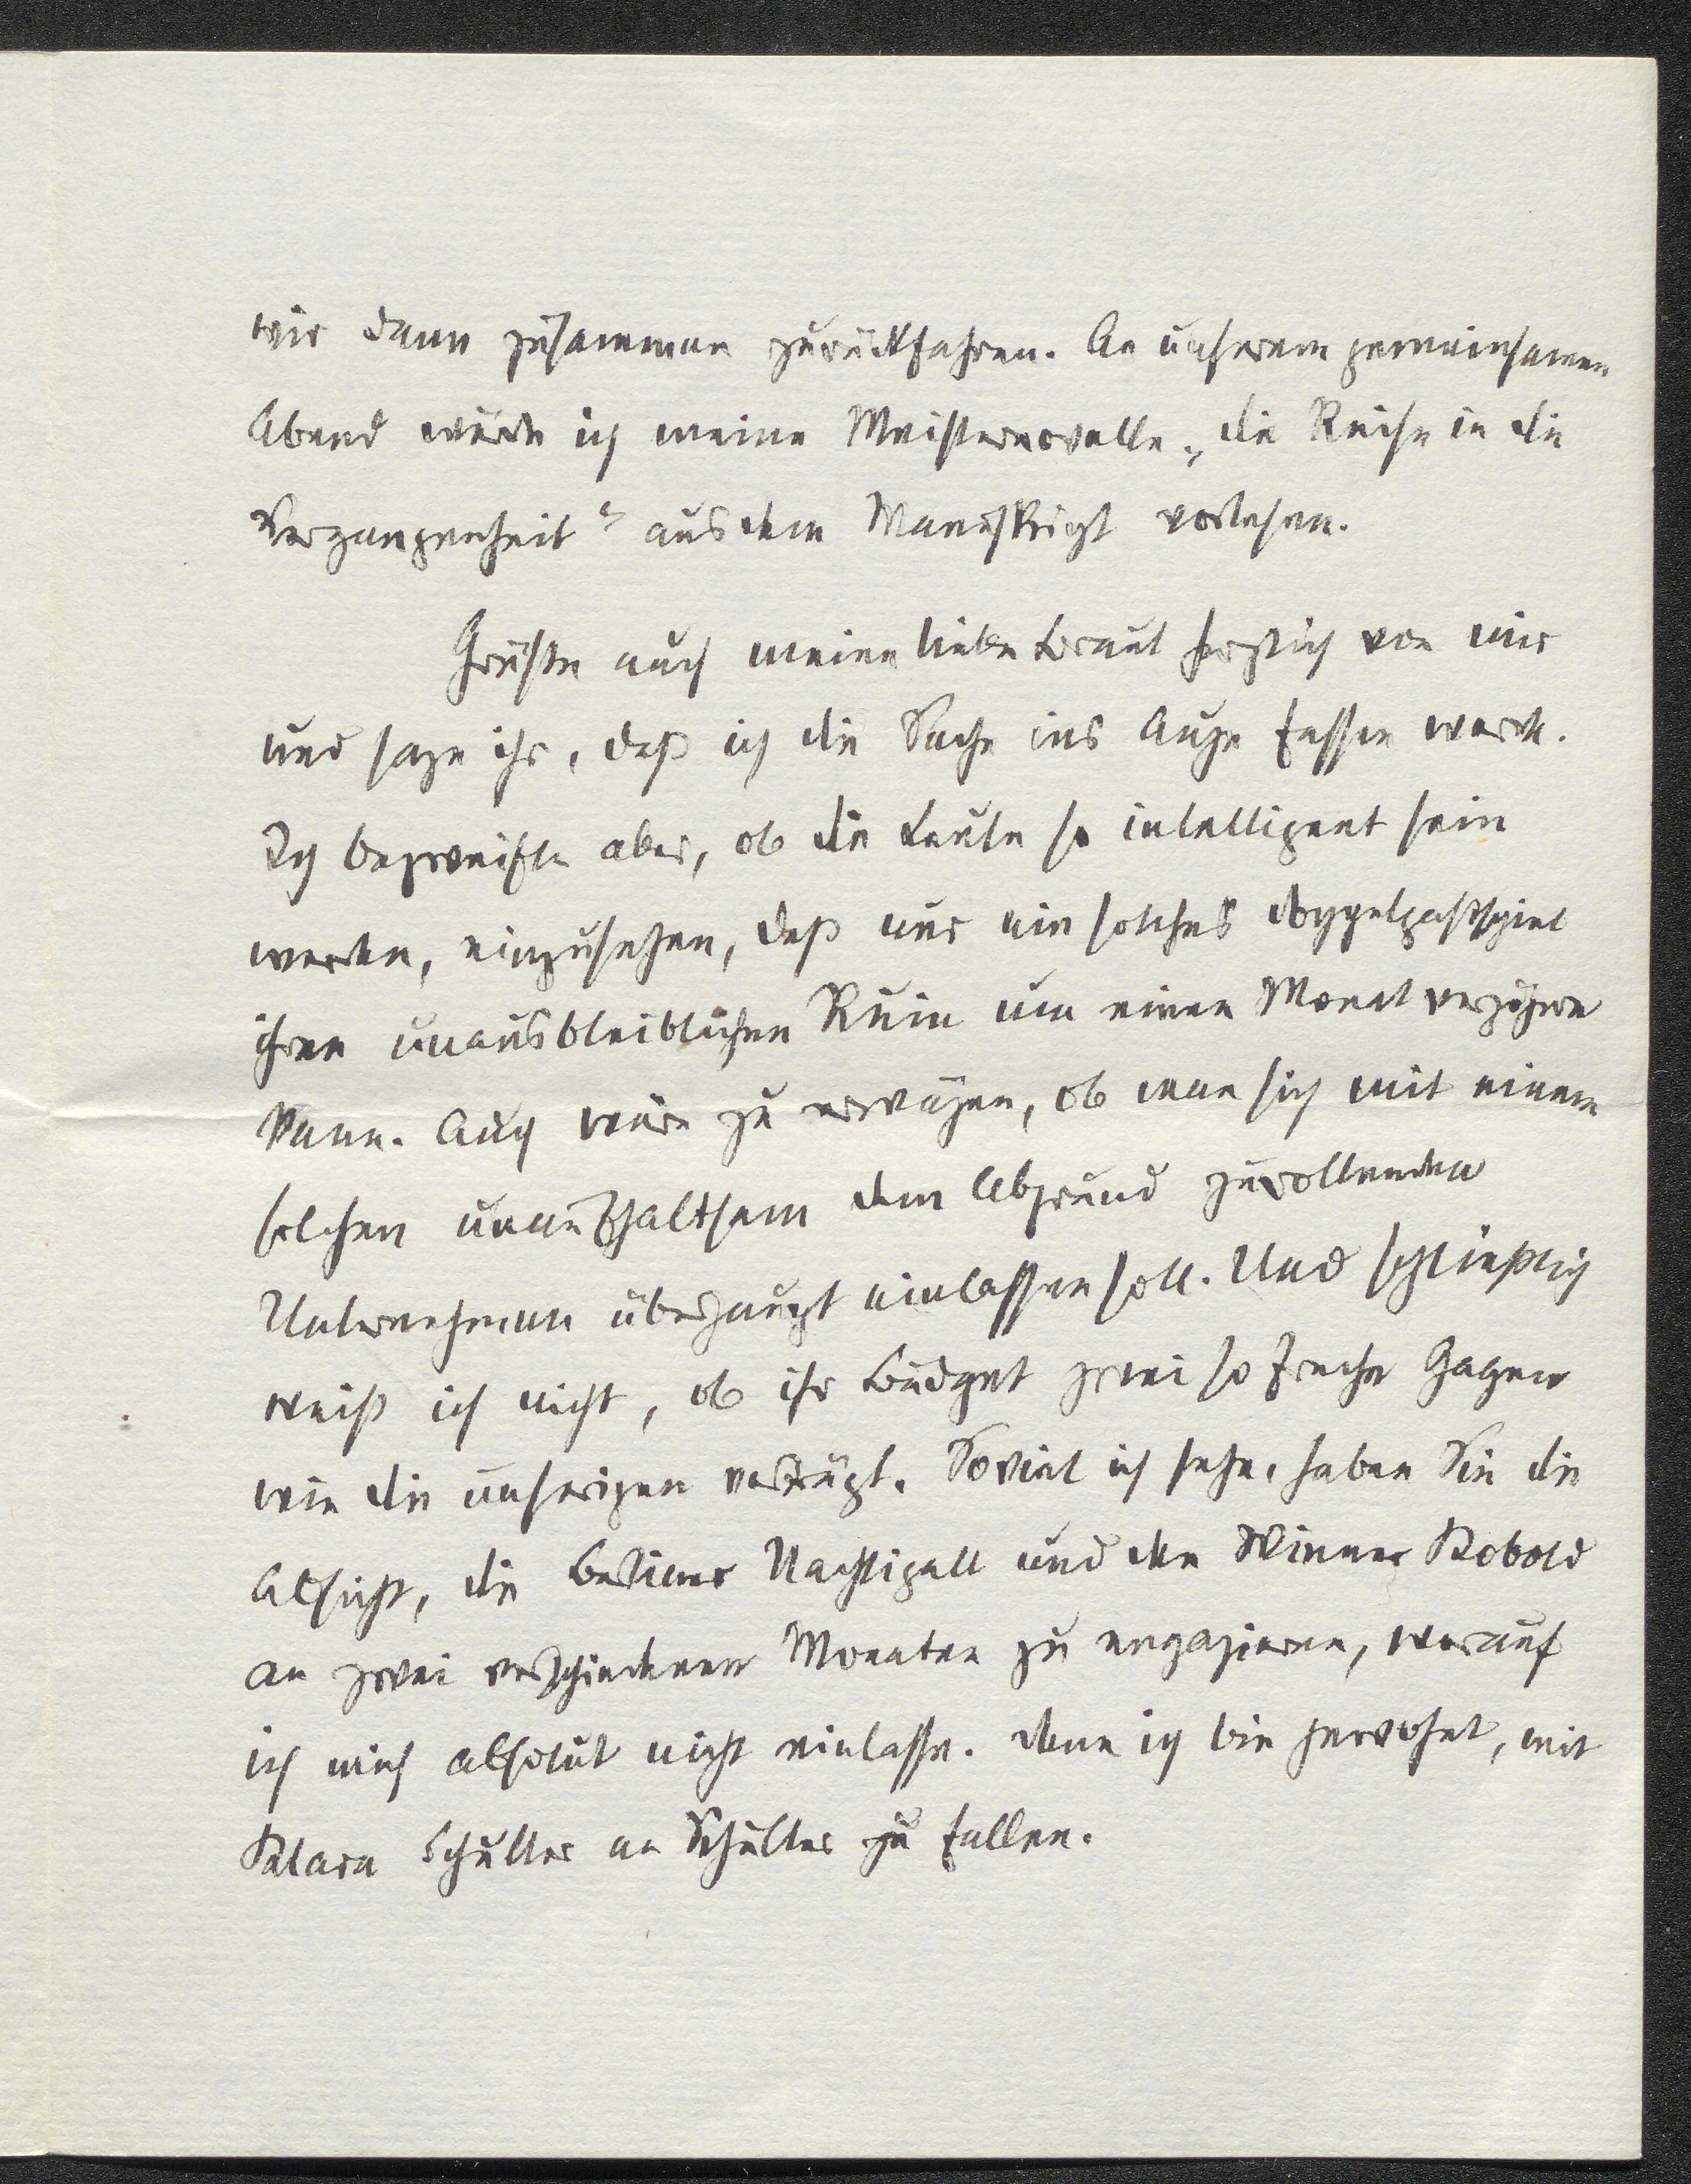 wir dann zusammen zurückfahren. An unserem gemeinsamen
Abend würde ich meine Meisternovelle „die Reise in die
Vergangenheit“ aus dem Manuskript vorlesen.
Grüsse auch meine liebe Braut herzlich von mir
und sage ihr, daß ich die Sache ins Auge fassen werde.
Ich bezweifle aber, ob die Leute so intelligent sein
werden, einzusehen, daß nur ein solches Doppelgastspiel
ihren unausbleiblichen Ruin um einen Monat verzögern
kann. Auch wäre zu erwägen, ob man sich mit einem
solchen unaufhaltsam dem Abgrund zurollenden
Unternehmen überhaupt einlassen soll. Und schließlich
weiß ich nicht, ob ihr Budget zwei so freche Gagen
wie die unserigen verträgt. Soviel ich sehe, haben Sie die
Absicht, die Berliner Nachtigall und den Wiener Kobold
an zwei verschiedenen Monaten zu engagieren, worauf
ich mich absolut nicht einlasse. Denn ich bin gewohnt, mit
Klara Schulter an Schulter zu fallen.